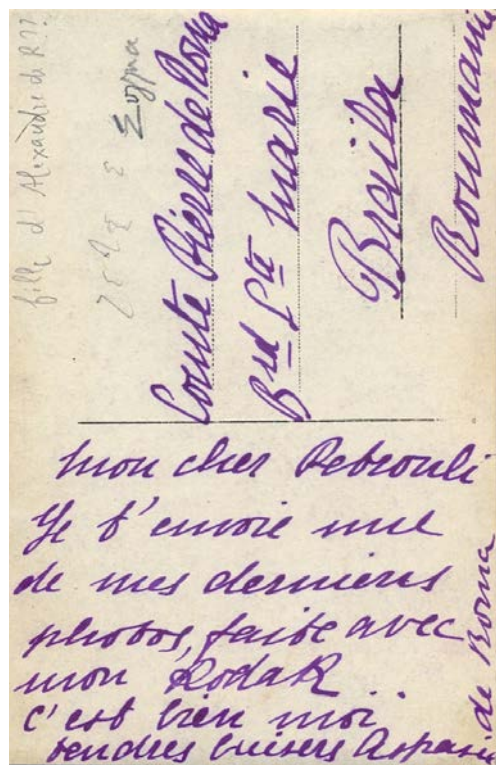 fille d'Alexandre de R ??
Comte Pierre de Roma
Bvd Pte Marie
Braila
Roumanie
mon cher Petrouli
Je t'envoie une
de mes derniers
photos, faite avec
mon Kodak
c'est bien moi..
tendres baisers Aspasie
de Roma